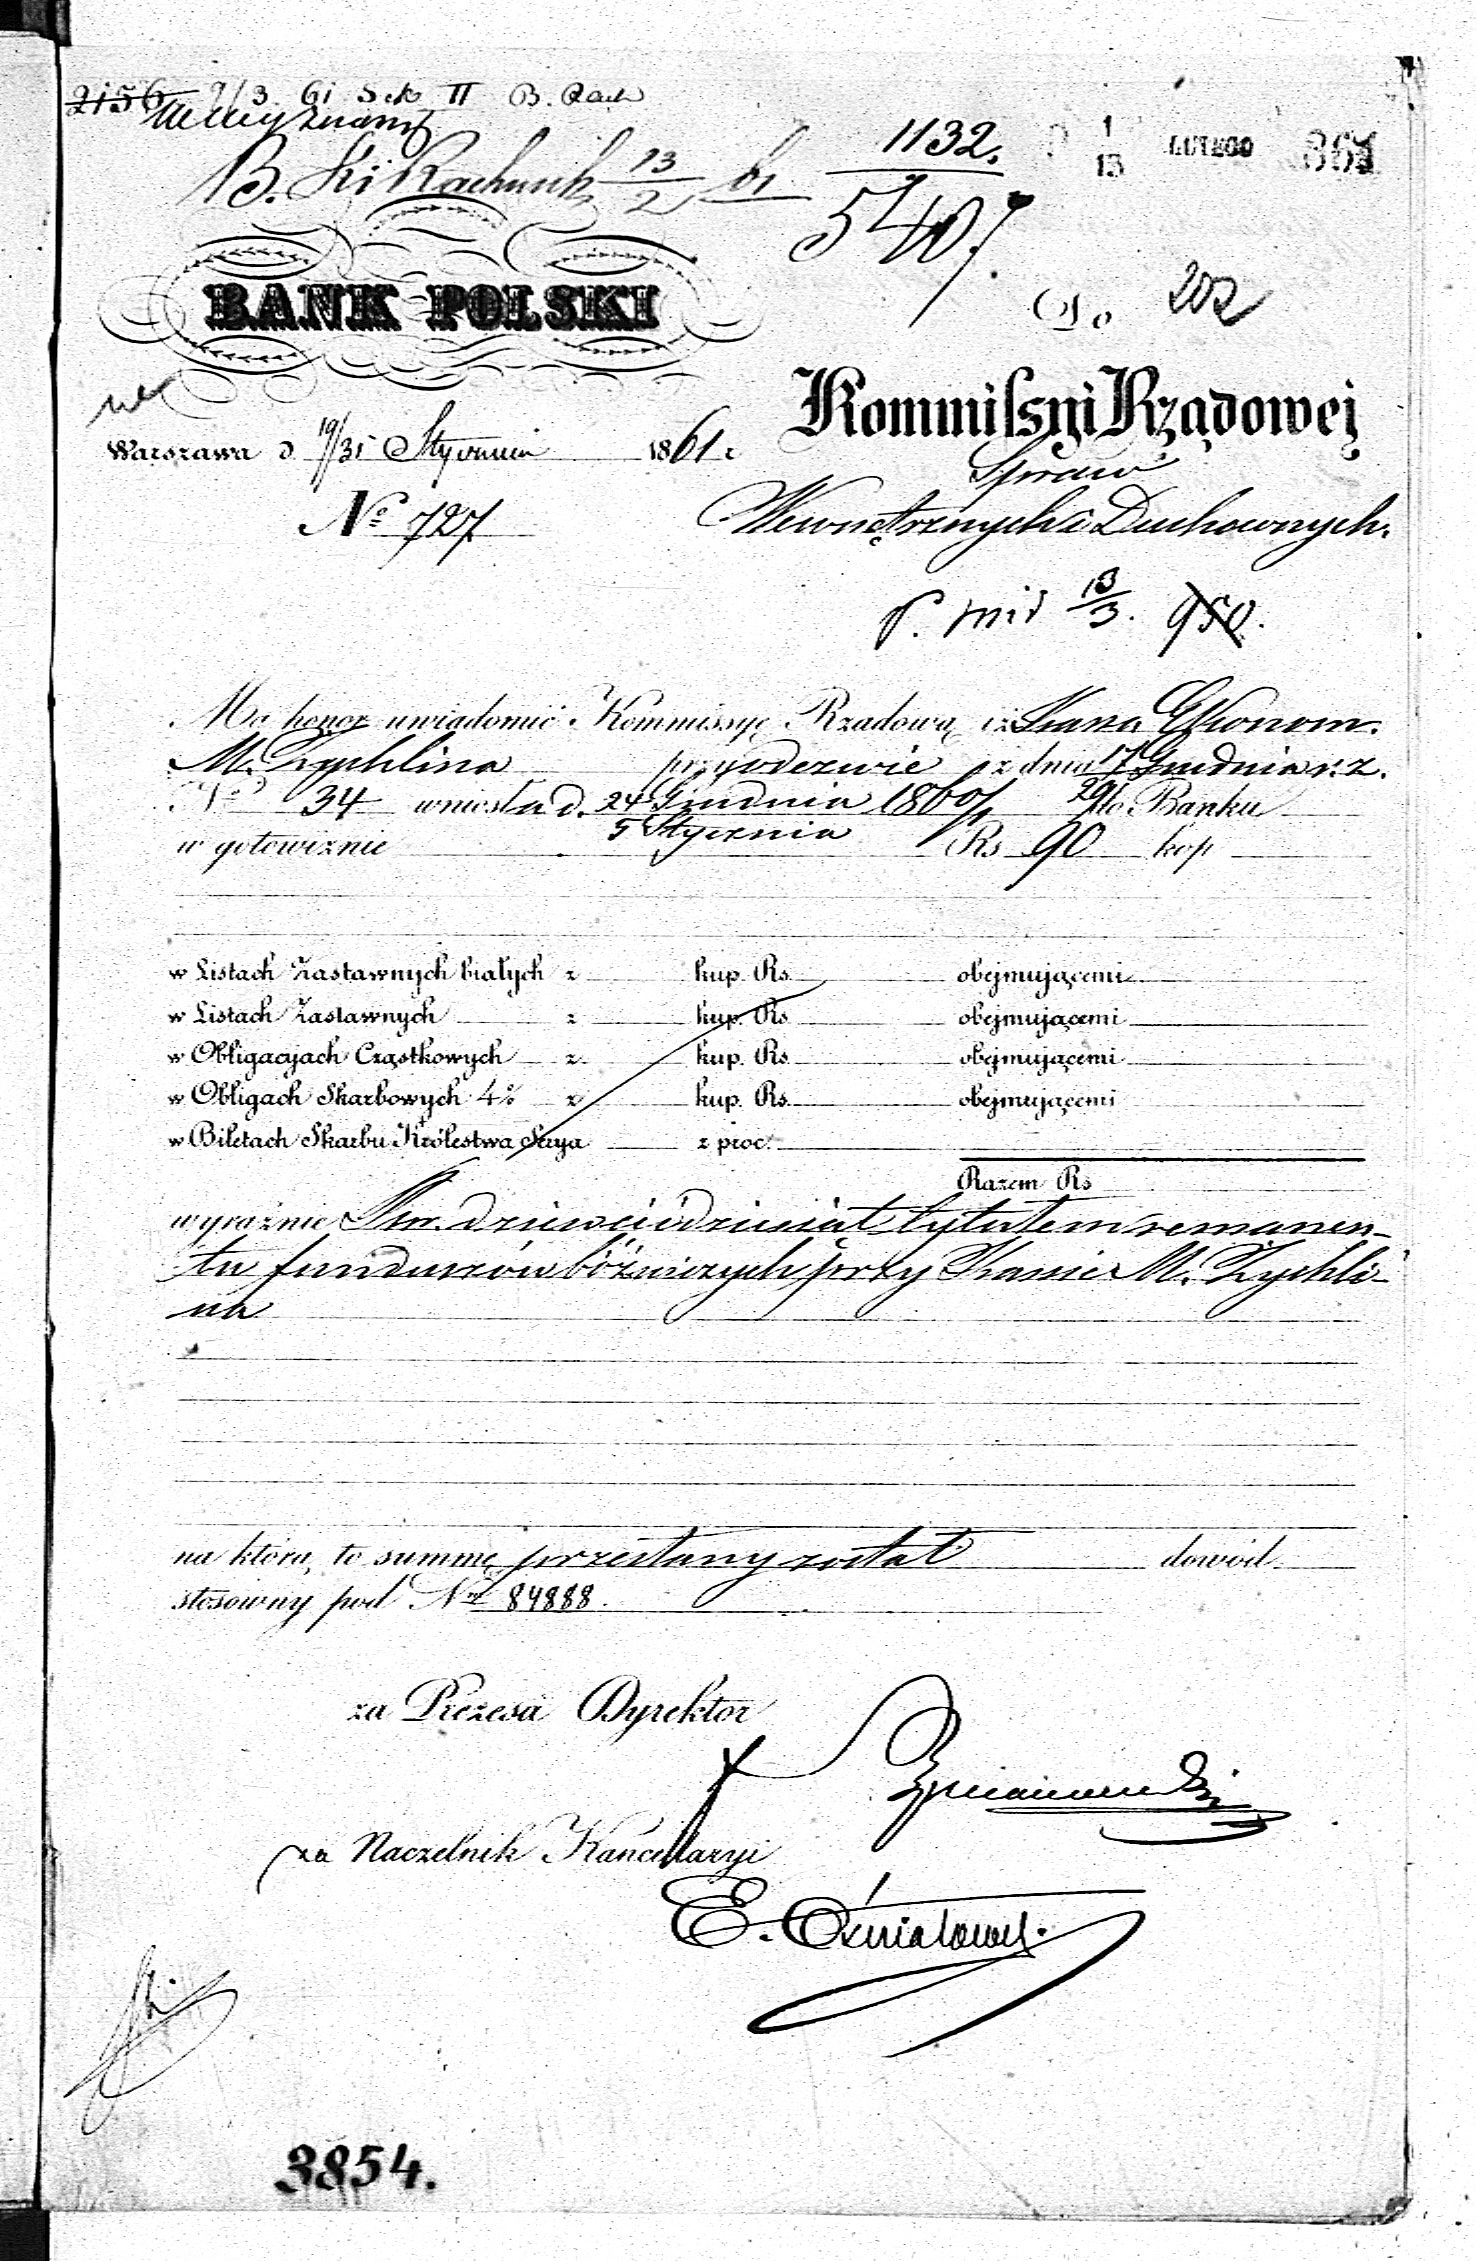 2156 9/3 61 Sek II B. Rach
B. Ski Rachunk 13/2 61
1132.
5407.
1/13 LUTEGO 1861
BANK POLSKI
Do 202
Kommissyi Rządowej
Spraw
Wewnętrznych i Duchownych.
Warszawa d 19/31 Stycznia 1861 r
No 727
13/3. 950.
Ma honor uwiadomić Kommissyę Rządową iż Kassa Ekonom.
M. Żychlina przy odezwie z dnia 17/29 Grudnia r. z.
No 34 wniosła d. 24 Grudnia / 5 Stycznia 1860/1 do Banku
w gotowiznie Rs 90 kop
w Listach Zastawnych białych z kup. Rs obejmującemi
w Listach Zastawnych z kup. Rs obejmującemi
w Obligacyach Cząstkowych z kup. Rs obejmującemi
w Obligach Skarbowych 4% z kup. Rs obejmującemi
w Biletach Skarbu Królestwa Serya z proc.
Razem Rs
wyraźnie Rsr. dziewięćdziesiąt tytułem remanen-
tu funduszów bóżniczych przy Kassie M. Żychli-
na
na którą to summę przesłany został dowód
stosowny pod No 84888.
za Prezesa Dyrektor
za Naczelnik Kancellaryi
3854.